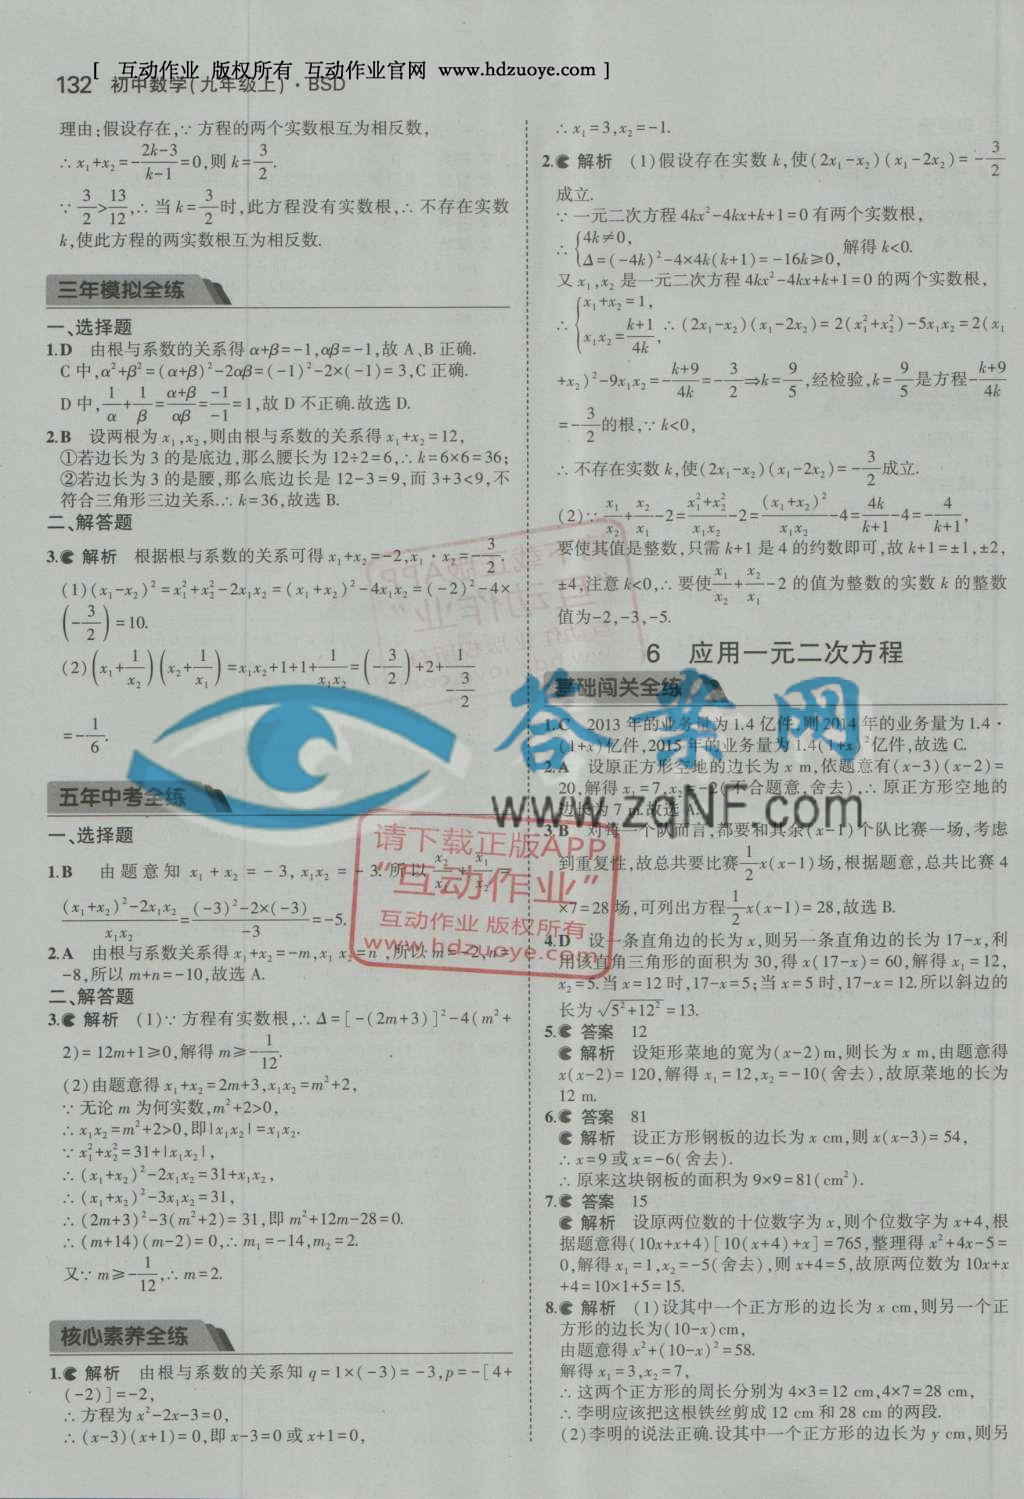 [ 互动作业 版权所有 互动作业官网 www.hdzuoye.com ]
132 初中数学(九年级上)·BSD
理由:假设存在,∵方程的两个实数根互为相反数,
∴x₁+x₂=-(2k-3)/(k-1)=0,则k=3/2.
∵3/2>13/12,∴当k=3/2时,此方程没有实数根,∴不存在实数
k,使此方程的两实数根互为相反数.
三年模拟全练
一、选择题
1.D 由根与系数的关系得α+β=-1,αβ=-1,故A、B正确.
C中,α²+β²=(α+β)²-2αβ=(-1)²-2×(-1)=3,C正确.
D中,1/α+1/β=(α+β)/αβ=-1/-1=1,故D不正确.故选D.
2.B 设两根为x₁,x₂,则由根与系数的关系得x₁+x₂=12,
①若边长为3的是底边,那么腰长为12÷2=6,∴k=6×6=36;
②若边长为3的是腰,那么底边长是12-3=9,而3+3<9,不
符合三角形三边关系.∴k=36,故选B.
二、解答题
3. 解析 根据根与系数的关系可得x₁+x₂=-2,x₁·x₂=-3/2.
(1)(x₁-x₂)²=x₁²+x₂²-2x₁x₂=(x₁+x₂)²-4x₁x₂=(-2)²-4×
(-3/2)=10.
(2)(x₁+1/x₂)(x₂+1/x₁)=x₁x₂+1+1+1/(x₁x₂)=(-3/2)+2+1/(-3/2)
=-1/6.
五年中考全练
一、选择题
1.B 由题意知x₁+x₂=-3,x₁x₂=-3.所以x₂/x₁+x₁/x₂=
((x₁+x₂)²-2x₁x₂)/(x₁x₂)=((-3)²-2×(-3))/(-3)=-5.
2.A 由根与系数关系得x₁+x₂=-m,x₁x₂=n,所以m=-2,n=
-8,所以m+n=-10,故选A.
二、解答题
3. 解析 (1)∵方程有实数根,∴Δ=[-(2m+3)]²-4(m²+
2)=12m+1≥0,解得m≥-1/12.
(2)由题意得x₁+x₂=2m+3,x₁x₂=m²+2,
∵无论m为何实数,m²+2>0,
∴x₁x₂=m²+2>0,即|x₁x₂|=x₁x₂.
∵x₁²+x₂²=31+|x₁x₂|,
∴(x₁+x₂)²-2x₁x₂=31+x₁x₂,
∴(x₁+x₂)²-3x₁x₂=31,
∴(2m+3)²-3(m²+2)=31,即m²+12m-28=0.
∴(m+14)(m-2)=0,∴m₁=-14,m₂=2.
又∵m≥-1/12,∴m=2.
核心素养全练
1. 解析 由根与系数的关系知q=1×(-3)=-3,p=-[4+
(-2)]=-2,
∴方程为x²-2x-3=0,
∴(x-3)(x+1)=0,即x-3=0或x+1=0,
∴x₁=3,x₂=-1.
2. 解析 (1)假设存在实数k,使(2x₁-x₂)(x₁-2x₂)=-3/2
成立.
∵一元二次方程4kx²-4kx+k+1=0有两个实数根,
∴{4k≠0,
Δ=(-4k)²-4×4k(k+1)=-16k≥0, 解得k<0.
又x₁,x₂是一元二次方程4kx²-4kx+k+1=0的两个实数根,
∴{x₁+x₂=1,
x₁x₂=(k+1)/4k, ∴(2x₁-x₂)(x₁-2x₂)=2(x₁²+x₂²)-5x₁x₂=2(x₁
+x₂)²-9x₁x₂=-(k+9)/4k=-3/2⇒k=9/5,经检验,k=9/5是方程-(k+9)/4k
=-3/2的根,∵k<0,
∴不存在实数k,使(2x₁-x₂)(x₁-2x₂)=-3/2成立.
(2)∵x₁/x₂+x₂/x₁-2=(x₁²+x₂²)/(x₁x₂)-2=(x₁+x₂)²/(x₁x₂)-4=4k/(k+1)-4=-4/(k+1),
要使其值是整数,只需k+1是4的约数即可,故k+1=±1,±2,
±4,注意k<0,∴要使x₁/x₂+x₂/x₁-2的值为整数的实数k的整数
值为-2,-3,-5.
6 应用一元二次方程
基础闯关全练
1.C 2013年的业务量为1.4亿件,则2014年的业务量为1.4·
(1+x)亿件,2015年的业务量为1.4(1+x)²亿件,故选C.
2.A 设原正方形空地的边长为x m,依题意有(x-3)(x-2)=
20,解得x₁=7,x₂=-2(不合题意,舍去),∴原正方形空地的
边长为7 m.故选A.
3.B 对每一个队而言,都要和其余(x-1)个队比赛一场,考虑
到重复性,故总共要比赛1/2x(x-1)场,根据题意,总共比赛4
×7=28场,可列出方程1/2x(x-1)=28,故选B.
4.D 设一条直角边的长为x,则另一条直角边的长为17-x,利
用该直角三角形的面积为30,得x(17-x)=60,解得x₁=12,
x₂=5.当x=12时,17-x=5;当x=5时,17-x=12.所以斜边的
长为√(5²+12²)=13.
5. 答案 12
解析 设矩形菜地的宽为(x-2)m,则长为x m,由题意得
x(x-2)=120,解得x₁=12,x₂=-10(舍去),故原菜地的长为
12 m.
6. 答案 81
解析 设正方形钢板的边长为x cm,则x(x-3)=54,
∴x=9或x=-6(舍去).
∴原来这块钢板的面积为9×9=81(cm²).
7. 答案 15
解析 设原两位数的十位数字为x,则个位数字为x+4,根
据题意得(10x+x+4)[10(x+4)+x]=765,整理得x²+4x-5=
0,解得x₁=1,x₂=-5(舍去),则x+4=5,故原两位数为10x+x
+4=10×1+5=15.
8. 解析 (1)设其中一个正方形的边长为x cm,则另一个正
方形的边长为(10-x)cm,
由题意得x²+(10-x)²=58.
解得x₁=3,x₂=7,
∴这两个正方形的周长分别为4×3=12 cm,4×7=28 cm,
∴李明应该把这根铁丝剪成12 cm和28 cm的两段.
(2)李明的说法正确.设其中一个正方形的边长为y cm,则另
答案网
www.zqNF.com
请下载正版APP
“互动作业”
互动作业 版权所有
www.hdzuoye.com